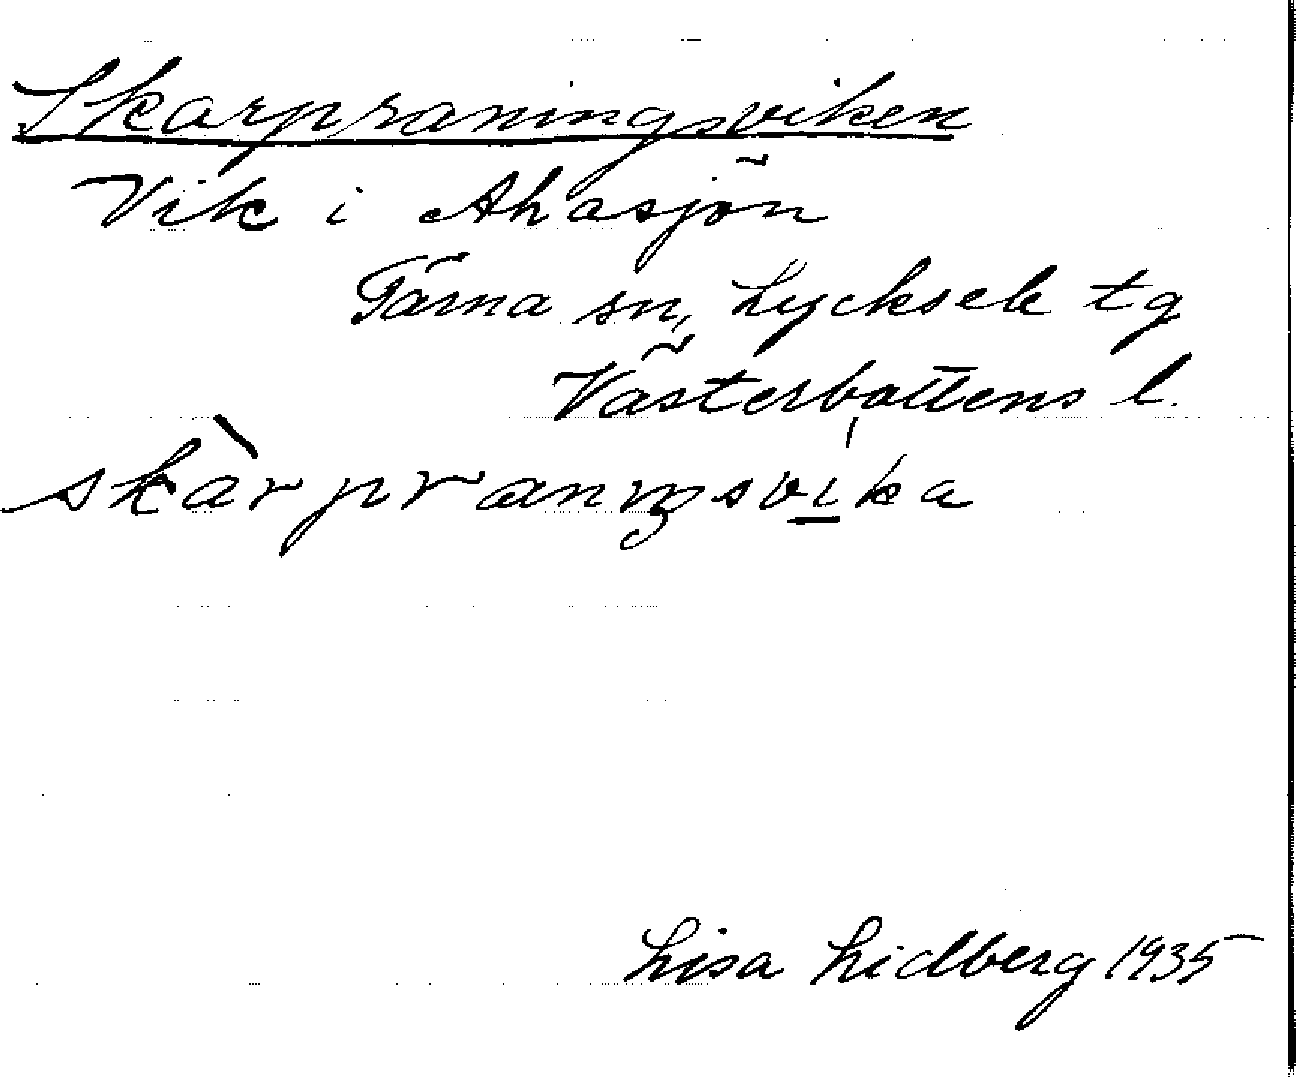 Skarpraningsviken
Vik i Ahasjön
Tärna sn, Lycksele tg
Västerbottens l.
skàrpranıŋsvi̲ka
Lisa Lidberg 1935